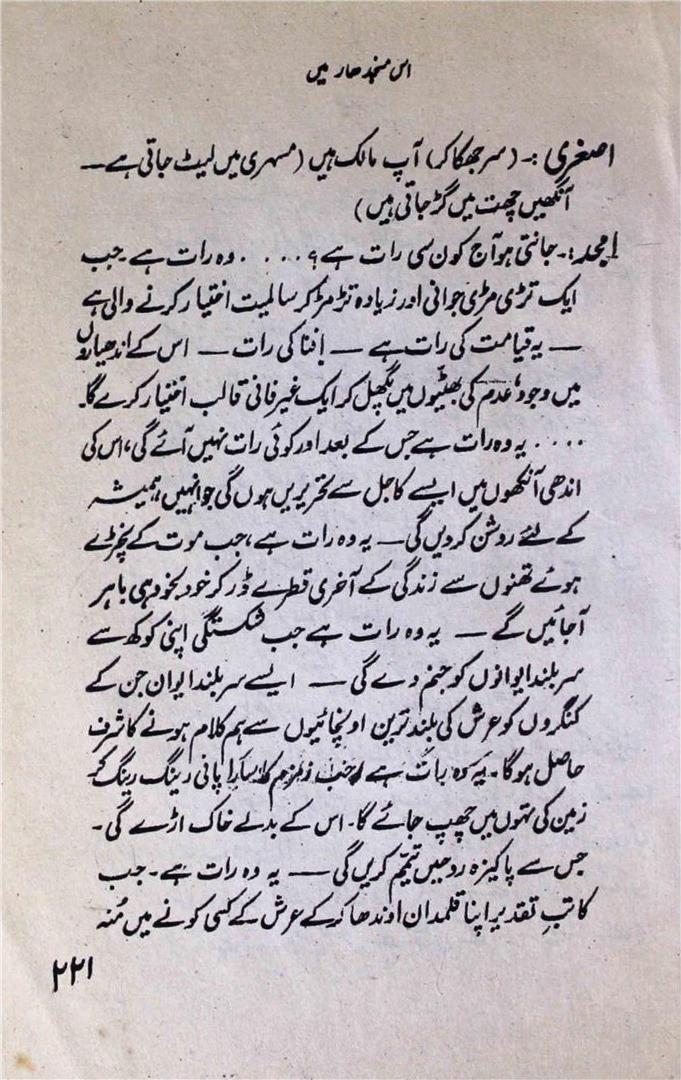 اس منجدھار میں
اصغری :۔ (سر جھکا کر) آپ مالک ہیں (مسہری میں لیٹ جاتی ہے ــ
آنکھیں چھت میں گڑ جاتی ہیں)
امجد :۔ جانتی ہو آج کون سی رات ہے؟ .... وہ رات ہے جب
ایک تڑی مڑی جوانی اور زیادہ تڑ مڑ کر سالمیت اختیار کرنے والی ہے
ــ یہ قیامت کی رات ہے ــ افنا کی رات ــ اس کے اندھیاروں
میں وجود، عدم کی بھٹیوں میں پگھل کر ایک غیر فانی قالب اختیار کرے گا۔
.... یہ وہ رات ہے جس کے بعد اور کوئی رات نہیں آئے گی، اس کی
اندھی آنکھوں میں ایسے کاجل سے تحریریں ہوں گی جو انہیں ہمیشہ
کے لئے روشن کر دیں گی ــ یہ وہ رات ہے، جب موت کے نچڑے
ہوئے تھنوں سے زندگی کے آخری قطرے ڈر کر خود بخود ہی باہر
آجائیں گے ــ یہ وہ رات ہے جب شکستگی اپنی کوکھ سے
سر بلند ایوانوں کو جنم دے گی ــ ایسے سر بلند ایوان جن کے
کنگروں کو عرش کی بلند ترین اونچائیوں سے ہم کلام ہونے کا شرف
حاصل ہوگا۔ یہ وہ رات ہے جب زمزم کا سارا پانی رینگ رینگ کر
زمین کی تہوں میں چھپ جائے گا۔ اس کے بدلے خاک اڑے گی۔
جس سے پاکیزہ روحیں تیمّم کریں گی ــ یہ وہ رات ہے۔ جب
کاتبِ تقدیر اپنا قلمدان اوندھا کر کے عرش کے کسی کونے میں مُنہ
۲۲۱